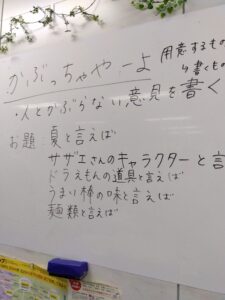 かぶっちゃやーよ
用意するもの
書くもの
・人とかぶらない意見を書く
お題 夏と言えば
サザエさんのキャラクターと言
ドラえもんの道具と言えば
うまい棒の味と言えば
麺類と言えば